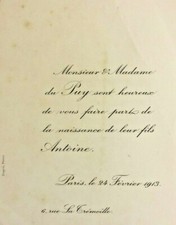 Monsieur & Madame
du Puy sont heureux
de vous faire part de
la naissance de leur fils
Antoine.
Paris, le 24 Février 1913
6, rue La Trémoille